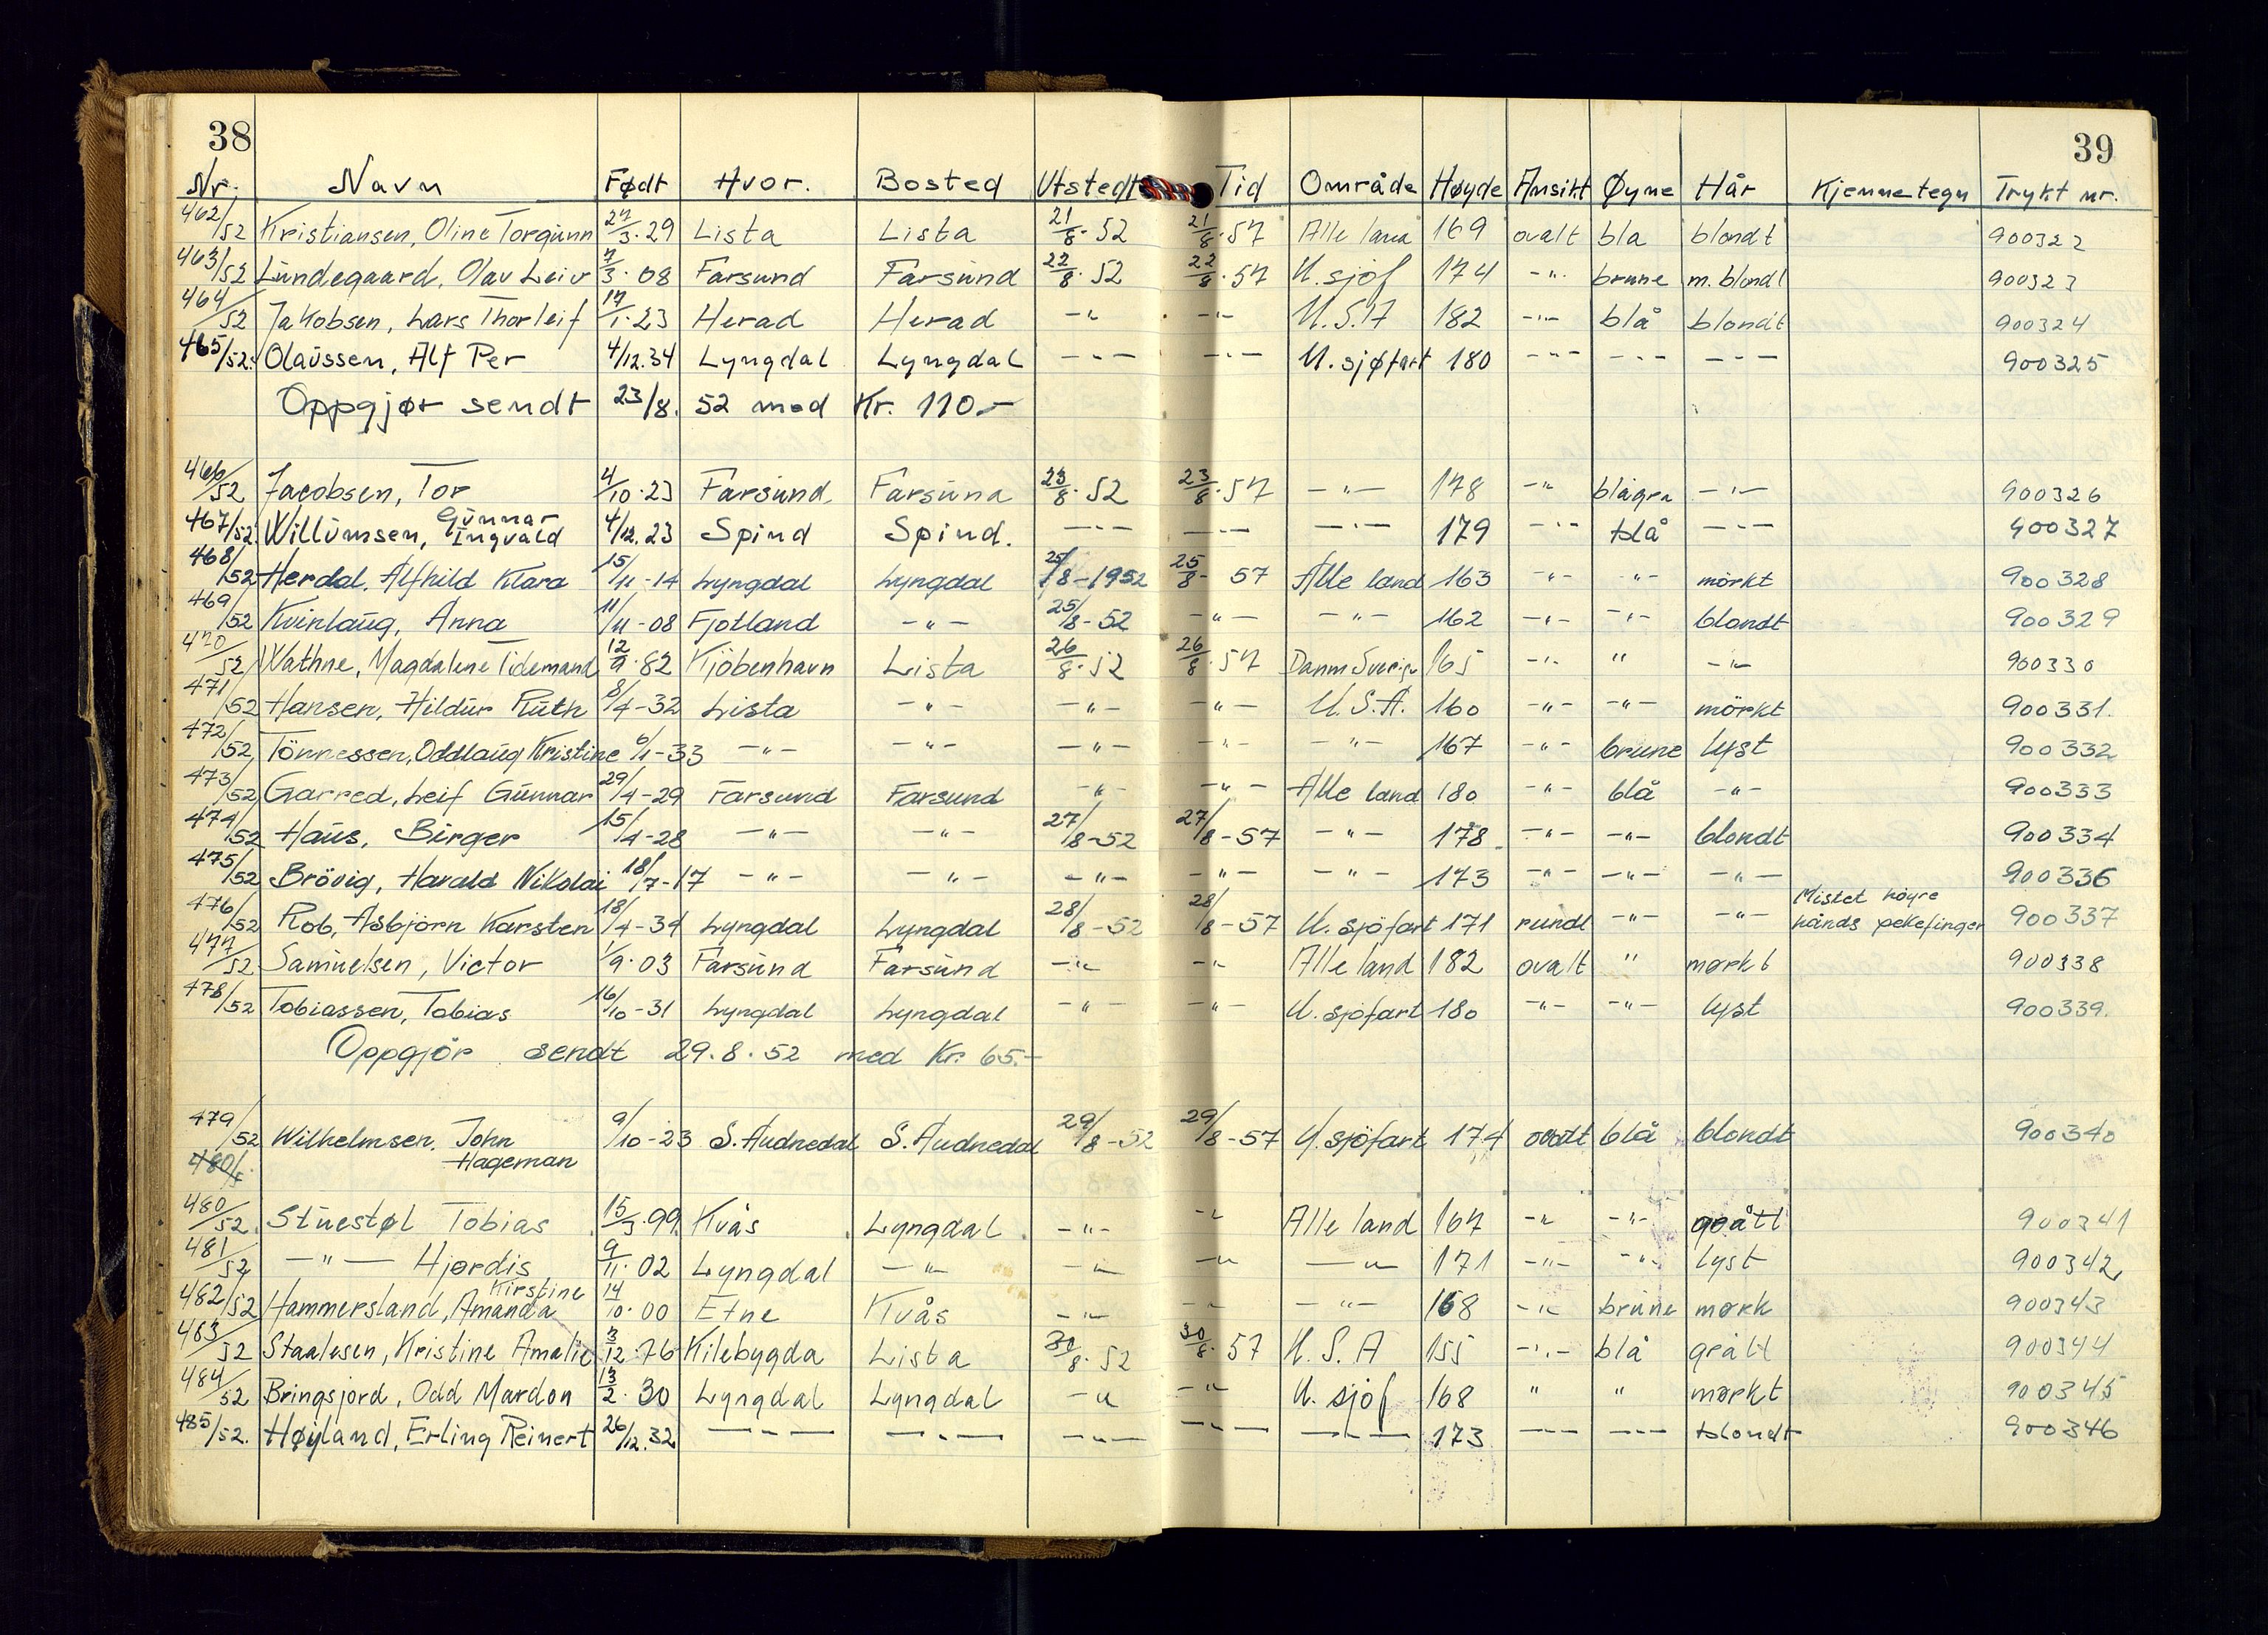 38
39
Nr. Navn Født Hvor. Bosted Utstedt Tid Område Høyde Ansikt Øyne Hår Kjennetegn Trykt nr.
462/52 Kristiansen, Oline Torgunn 27/3.29 Lista Lista 21/8.52 21/8.57 Alle land 169 ovalt blå blondt 900322
463/52 Lundegaard, Olav Leiv 7/3.08 Farsund Farsund 22/8.52 22/8.57 U. sjøf 174 -"- brune m. blondt 900323
464/52 Jakobsen, Lars Thorleif 17/1.23 Herad Herad -"- -"- U.S.A 182 -"- blå blondt 900324
465/52. Olaussen, Alf Per 4/12.34 Lyngdal Lyngdal -"- -"- U. sjøfart 180 -"- -"- -"- 900325
Oppgjør sendt 23/8. 52 med Kr. 110.-
466/52 Jacobsen, Tor 4/10.23 Farsund, Farsund 23/8.52 23/8.57 -"- 178 -"- blågrå -"- 900326
467/52. Willumsen, Gunnar Ingvald 4/12.23 Spind Spind. -"- -"- -"- 179 -"- blå -"- 900327
468/52 Herdal, Alfhild Klara 15/11-14 Lyngdal Lyngdal 25/8-1952 25/8- 57 Alle land 163 -"- -"- mörkt 900328
469/52 Kvinlaug, Anna 11/11-08 Fjotland -"- 25/8-52 -"- -"- 162 -"- -"- blondt 900329
470/52 Wathne, Magdalene Tidemand 12/9.82 Kjöbenhavn Lista 26/8.52 26/8.57 Danm Sverige 165 -"- " -"- 900330
471/52 Hansen, Hildur Ruth 8/4-32 Lista -"- -"- -"- U.S.A. 160 -"- -"- mörkt 900331.
472/52, Tönnessen, Oddlaug Kristine 6/1-33 -"- -"- -"- -"- -"- 167 -"- brune lyst 900332
473/52, Garred, Leif Gunnar 29/4-29 Farsund Farsund -"- -"- Alle land 180 -"- blå -"- 900333
474/52 Haus, Birger 15/4-28 -"- -"- 27/8-52 27/8-57 -"- 178 -"- -"- blondt 900334
475/52 Brövig, Harald Nikolai 18/7-17 -"- -"- -"- -"- -"- 173 -"- -"- -"- 900336
476/52 Rob, Asbjörn Karsten 18/4-34 Lyngdal Lyngdal 28/8-52 28/8-57 U. sjöfart 171 rundt -"- -"- Mistet høyre hånds pekefinger 900337
477/52 Samuelsen, Victor 1/9.03 Farsund Farsund -"- -"- Alle land 182 ovalt " mørkt 900338
478/52 Tobiassen, Tobias 16/10-31 Lyngdal Lyngdal -"- -"- U. sjöfart 180 -"- -"- lyst 900339.
Oppgjör sendt 29.8.52 med Kr. 65.-
479/52 Wilhelmsen, John Hageman 9/10-23 S. Audnedal S. Audnedal 29/8-52 29/8-57 U. sjöfart 174 ovalt blå blondt 900340
480/5
480/52. Stuestøl Tobias 15/3.99 Kvås Lyngdal -"- -"- Alle land 167 -"- -"- grått 900341
481/52 -"- Hjørdis 9/11.02 Lyngdal -"- -"- -"- -"- 171 -"- -"- lyst 900342
482/52 Hammersland, Amanda Kirstine 14/10.00 Etne Kvås -"- -"- -"- 168 -"- brune mørk 900343
483/52 Staalesen, Kristine Amalie 3/12.76 Kilebygda Lista 30/8.52 30/8.57 U.S.A 155 -"- blå grått 900344
484/52 Bringsjord, Odd Mardon 13/2.30 Lyngdal Lyngdal -"- -"- U. sjøf 168 " " mørkt 900345
485/52. Høyland, Erling Reinert 26/12.32 -"- -"- -"- -"- -"- 173 -"- -"- blondt 900346